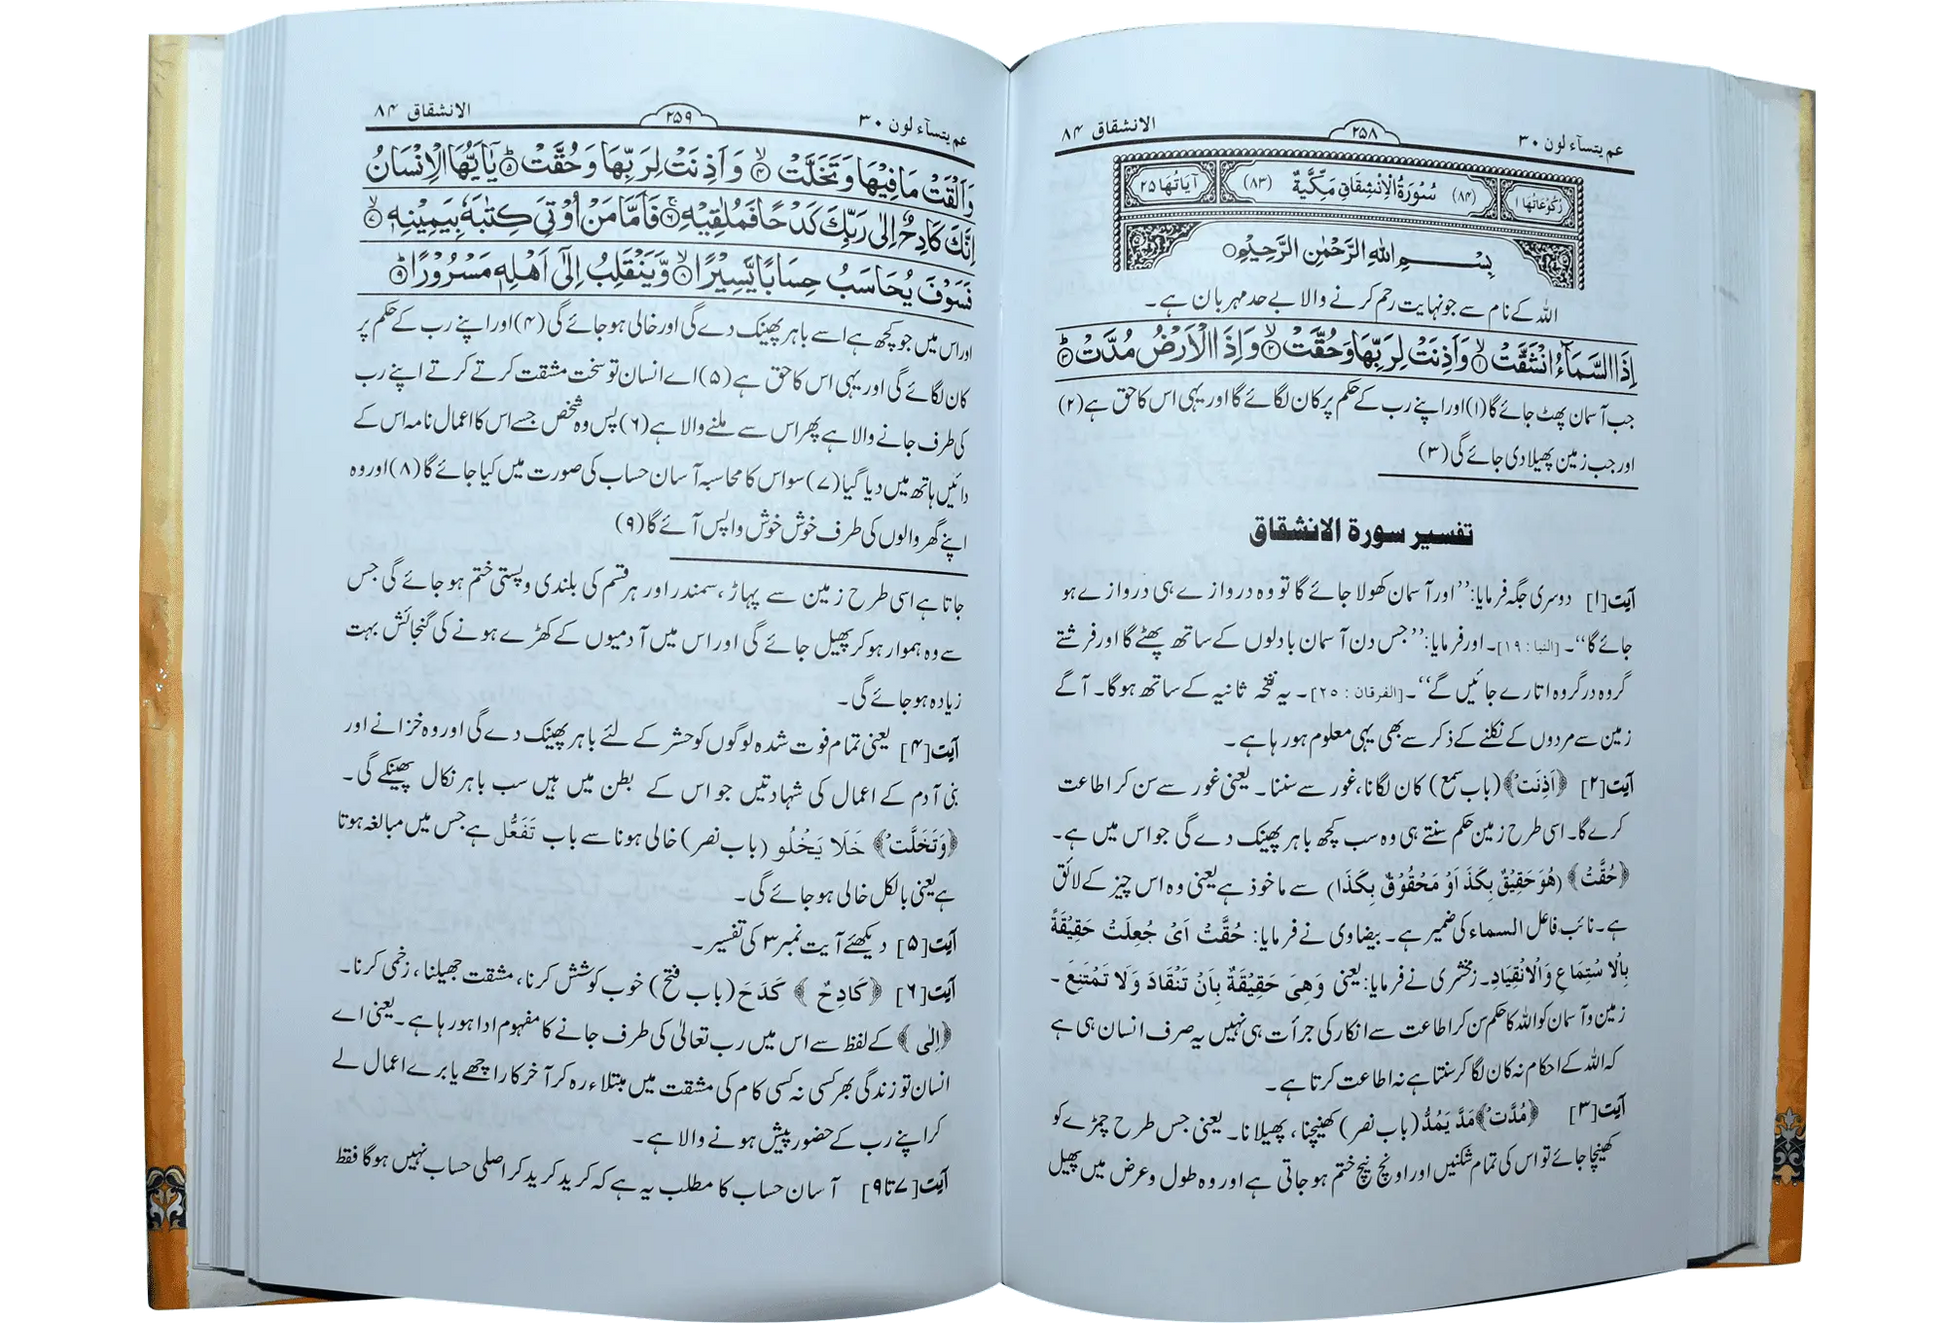 عم یتسآء لون ۳۰
۲۵۸
الانشقاق ۸۴
رُكُوْعَاتُهَا ۱
(۸۴) سُوْرَةُ الْاِنْشِقَاقِ مَكِّيَّةٌ (۸۳)
اٰيَاتُهَا ۲۵
بِسْمِ اللهِ الرَّحْمٰنِ الرَّحِيْمِ
اللہ کے نام سے جو نہایت رحم کرنے والا بے حد مہربان ہے۔
اِذَا السَّمَآءُ انْشَقَّتْ ۱ وَاَذِنَتْ لِرَبِّهَا وَحُقَّتْ ۲ وَاِذَا الْاَرْضُ مُدَّتْ ۳
جب آسمان پھٹ جائے گا (۱) اور اپنے رب کے حکم پر کان لگائے گا اور یہی اس کا حق ہے (۲)
اور جب زمین پھیلا دی جائے گی (۳)
تفسیر سورة الانشقاق
آیت [۱] دوسری جگہ فرمایا: ’’اور آسمان کھولا جائے گا تو وہ دروازے ہی دروازے ہو
جائے گا‘‘۔ [النبا : ۱۹]۔ اور فرمایا: ’’جس دن آسمان بادلوں کے ساتھ پھٹے گا اور فرشتے
گروہ در گروہ اتارے جائیں گے‘‘۔ [الفرقان : ۲۵]۔ یہ نفخہ ثانیہ کے ساتھ ہو گا۔ آگے
زمین سے مردوں کے نکلنے کے ذکر سے بھی یہی معلوم ہو رہا ہے۔
آیت [۲] ﴿اَذِنَتْ﴾ (باب سمع) کان لگانا، غور سے سننا۔ یعنی غور سے سن کر اطاعت
کرے گا۔ اسی طرح زمین حکم سنتے ہی وہ سب کچھ باہر پھینک دے گی جو اس میں ہے۔
﴿حُقَّتْ﴾ (هُوَ حَقِيْقٌ بِكَذَا اَوْ مَحْقُوْقٌ بِكَذَا) سے ماخوذ ہے یعنی وہ اس چیز کے لائق
ہے۔ نائب فاعل السماء کی ضمیر ہے۔ بیضاوی نے فرمایا: حُقَّتْ اَىْ جُعِلَتْ حَقِيْقَةً
بِالْاِسْتِمَاعِ وَالْاِنْقِيَادِ۔ زمخشری نے فرمایا: یعنی وَهِىَ حَقِيْقَةٌ بِاَنْ تَنْقَادَ وَلَا تَمْتَنِعَ ۔
زمین و آسمان کو اللہ کا حکم سن کر اطاعت سے انکار کی جرأت ہی نہیں یہ صرف انسان ہی ہے
کہ اللہ کے احکام نہ کان لگا کر سنتا ہے نہ اطاعت کرتا ہے۔
آیت [۳] ﴿مُدَّتْ﴾ مَدَّ يَمُدُّ (باب نصر) کھینچنا، پھیلانا۔ یعنی جس طرح چمڑے کو
کھینچا جائے تو اس کی تمام شکنیں اور اونچ نیچ ختم ہو جاتی ہے اور وہ طول و عرض میں پھیل
عم یتسآء لون ۳۰
۲۵۹
الانشقاق ۸۴
وَاَلْقَتْ مَا فِيْهَا وَتَخَلَّتْ ۴ وَاَذِنَتْ لِرَبِّهَا وَحُقَّتْ ۵ يٰۤاَيُّهَا الْاِنْسَانُ
اِنَّكَ كَادِحٌ اِلٰى رَبِّكَ كَدْحًا فَمُلٰقِيْهِ ۶ فَاَمَّا مَنْ اُوْتِىَ كِتٰبَهٗ بِيَمِيْنِهٖ ۷
فَسَوْفَ يُحَاسَبُ حِسَابًا يَّسِيْرًا ۸ وَّيَنْقَلِبُ اِلٰٓى اَهْلِهٖ مَسْرُوْرًا ۹
اور اس میں جو کچھ ہے اسے باہر پھینک دے گی اور خالی ہو جائے گی (۴) اور اپنے رب کے حکم پر
کان لگائے گی اور یہی اس کا حق ہے (۵) اے انسان تو سخت مشقت کرتے کرتے اپنے رب
کی طرف جانے والا ہے پھر اس سے ملنے والا ہے (۶) پس وہ شخص جسے اس کا اعمال نامہ اس کے
دائیں ہاتھ میں دیا گیا (۷) سو اس کا محاسبہ آسان حساب کی صورت میں کیا جائے گا (۸) اور وہ
اپنے گھر والوں کی طرف خوش خوش واپس آئے گا (۹)
جاتا ہے اسی طرح زمین سے پہاڑ، سمندر اور ہر قسم کی بلندی و پستی ختم ہو جائے گی جس
سے وہ ہموار ہو کر پھیل جائے گی اور اس میں آدمیوں کے کھڑے ہونے کی گنجائش بہت
زیادہ ہو جائے گی۔
آیت [۴] یعنی تمام فوت شدہ لوگوں کو حشر کے لئے باہر پھینک دے گی اور وہ خزانے اور
بنی آدم کے اعمال کی شہادتیں جو اس کے بطن میں ہیں سب باہر نکال پھینکے گی۔
﴿وَتَخَلَّتْ﴾ خَلَا يَخْلُو (باب نصر) خالی ہونا سے باب تَفَعُّل ہے جس میں مبالغہ ہوتا
ہے یعنی بالکل خالی ہو جائے گی۔
آیت [۵] دیکھئے آیت نمبر ۳ کی تفسیر۔
آیت [۶] ﴿كَادِحٌ﴾ كَدَحَ (باب فتح) خوب کوشش کرنا، مشقت جھیلنا، زخمی کرنا۔
﴿اِلٰى﴾ کے لفظ سے اس میں رب تعالیٰ کی طرف جانے کا مفہوم ادا ہو رہا ہے۔ یعنی اے
انسان تو زندگی بھر کسی نہ کسی کام کی مشقت میں مبتلاء رہ کر آخر کار اچھے یا برے اعمال لے
کر اپنے رب کے حضور پیش ہونے والا ہے۔
آیت [۷ تا ۹] آسان حساب کا مطلب یہ ہے کہ کرید کرید کر اصلی حساب نہیں ہوگا فقط